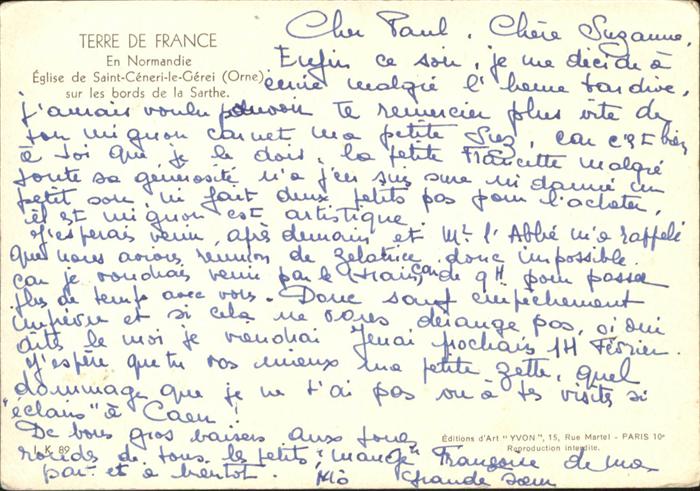 TERRE DE FRANCE
En Normandie
Église de Saint-Céneri-le-Gérei (Orne)
sur les bords de la Sarthe.
Cher Paul, Chère Suzanne,
Enfin ce soir, je me décide à
écrire malgré l'heure tardive,
j'aurais voulu pouvoir te remercier plus vite de
ton mignon carnet ma petite Suz, car c'est bien
à toi que je le dois, la petite Francette malgré
toute sa générosité n'a j'en suis sure ni donné un
petit sou, ni fait deux petits pas pour l'acheter,
il est mignon est artistique.
J'espérais venir, après demain et Mr l'Abbé m'a rappelé
que nous avions réunion de zélatrice donc impossible
car je voudrais venir par le (train) car de 9H pour passer
plus de temps avec vous. Donc sauf empêchement
imprévu et si cela ne vous dérange pas, si oui
dites le moi je viendrai Jeudi prochain 14 Février.
J'espère que tu vas mieux ma petite zette, quel
dommage que je ne t'ai pas vu à tes visites si
"éclairs" à Caen!
De bons gros baisers aux joues
rondes de tous les petits, Françoise de ma
part et à bientot. Grande Sœur
I. K. 89
Éditions d'Art "YVON", 15, Rue Martel - PARIS 10e
Reproduction interdite.